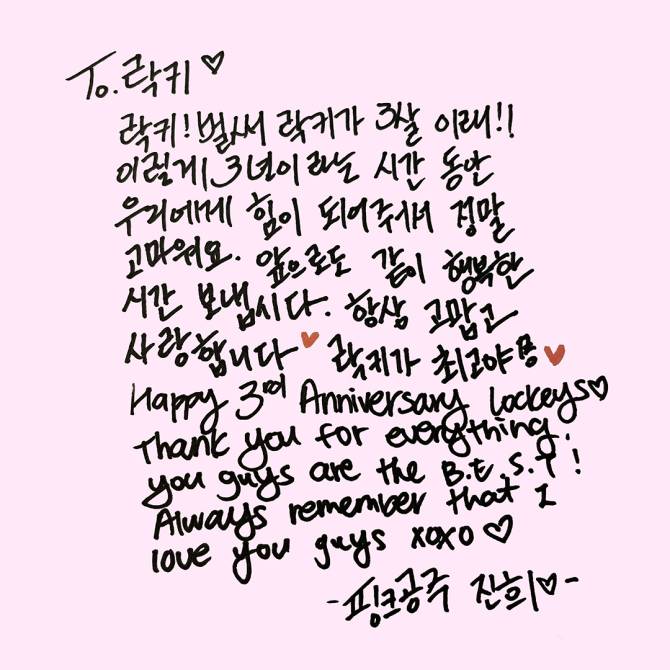 To.락키♡
락키! 벌써 락키가 3살 이래!!
이렇게 3년이라는 시간 동안
우리에게 힘이 되어주셔서 정말
고마워요. 앞으로도 같이 행복한
시간 보냅시다. 항상 고맙고
사랑합니다♥ 락키가 최고야용♥
Happy 3rd Anniversary Lockeys♡
Thank you for everything.
you guys are the B.E.S.T!
Always remember that I
love you guys xoxo♡
-핑크공주 진희♡-